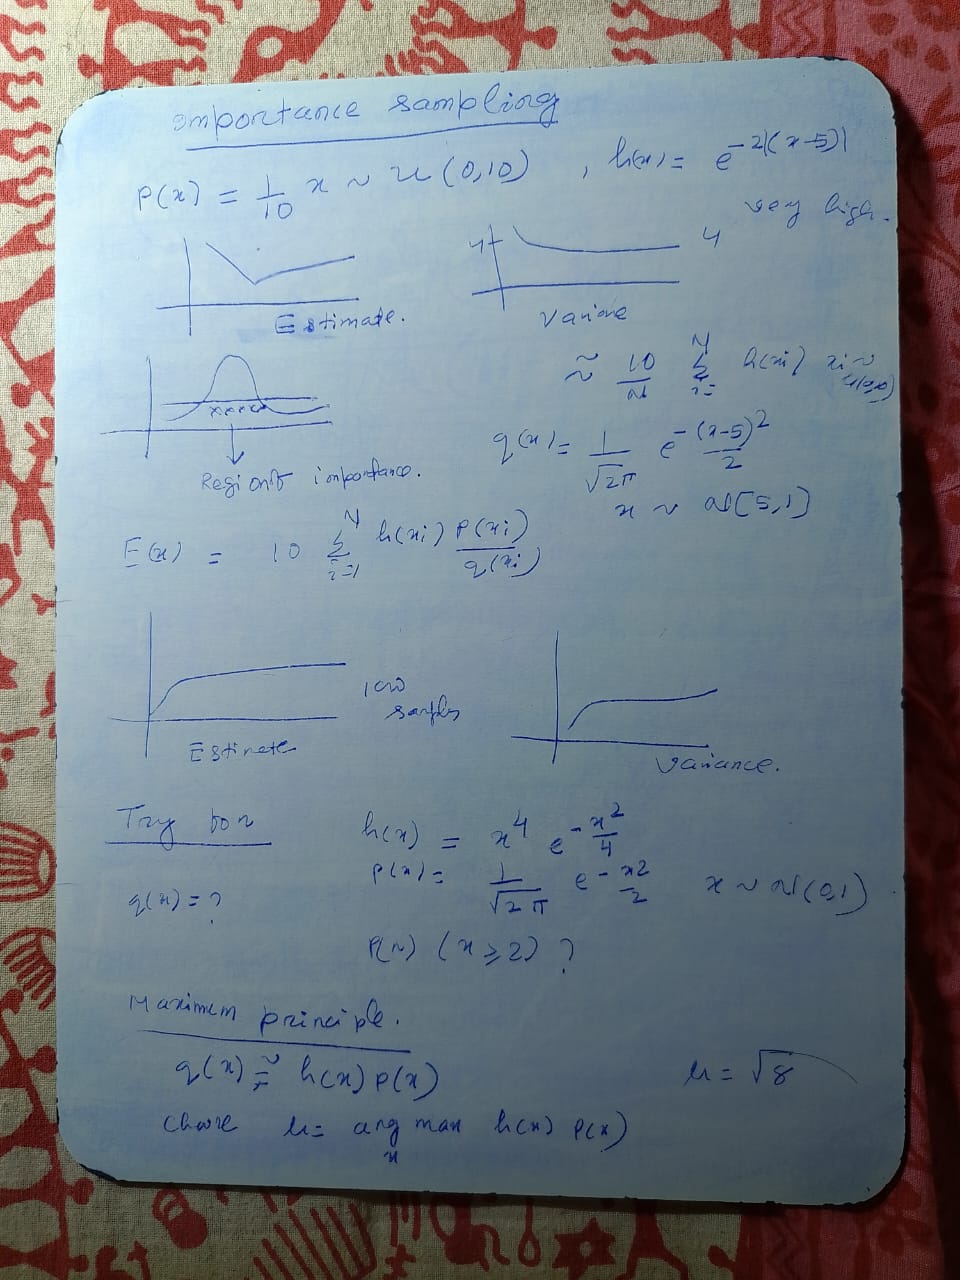 Importance sampling
P(x) = 1/10 x ~ U(0,10) , h(x) = e^{-2|(x-5)|}
very high.
4 4
Estimate. Variance
≈ 10/N Σ_{i=}^{N} h(xi) xi ~
q(x) = 1/√2π e^{-(x-5)²/2}
Region of importance.
x ~ N[5,1]
E(x) = 10 Σ_{i=1}^{N} h(xi) P(xi)/q(xi)
samples
Estimate
Variance.
Try for h(x) = x⁴ e^{-x²/4}
P(x) = 1/√2π e^{-x²/2} x ~ N(0,1)
q(x) = ?
P(x) (x ≥ 2) ?
Maximum principle.
q(x) ≈ h(x) P(x) μ = √8
μ = arg max_x h(x) P(x)